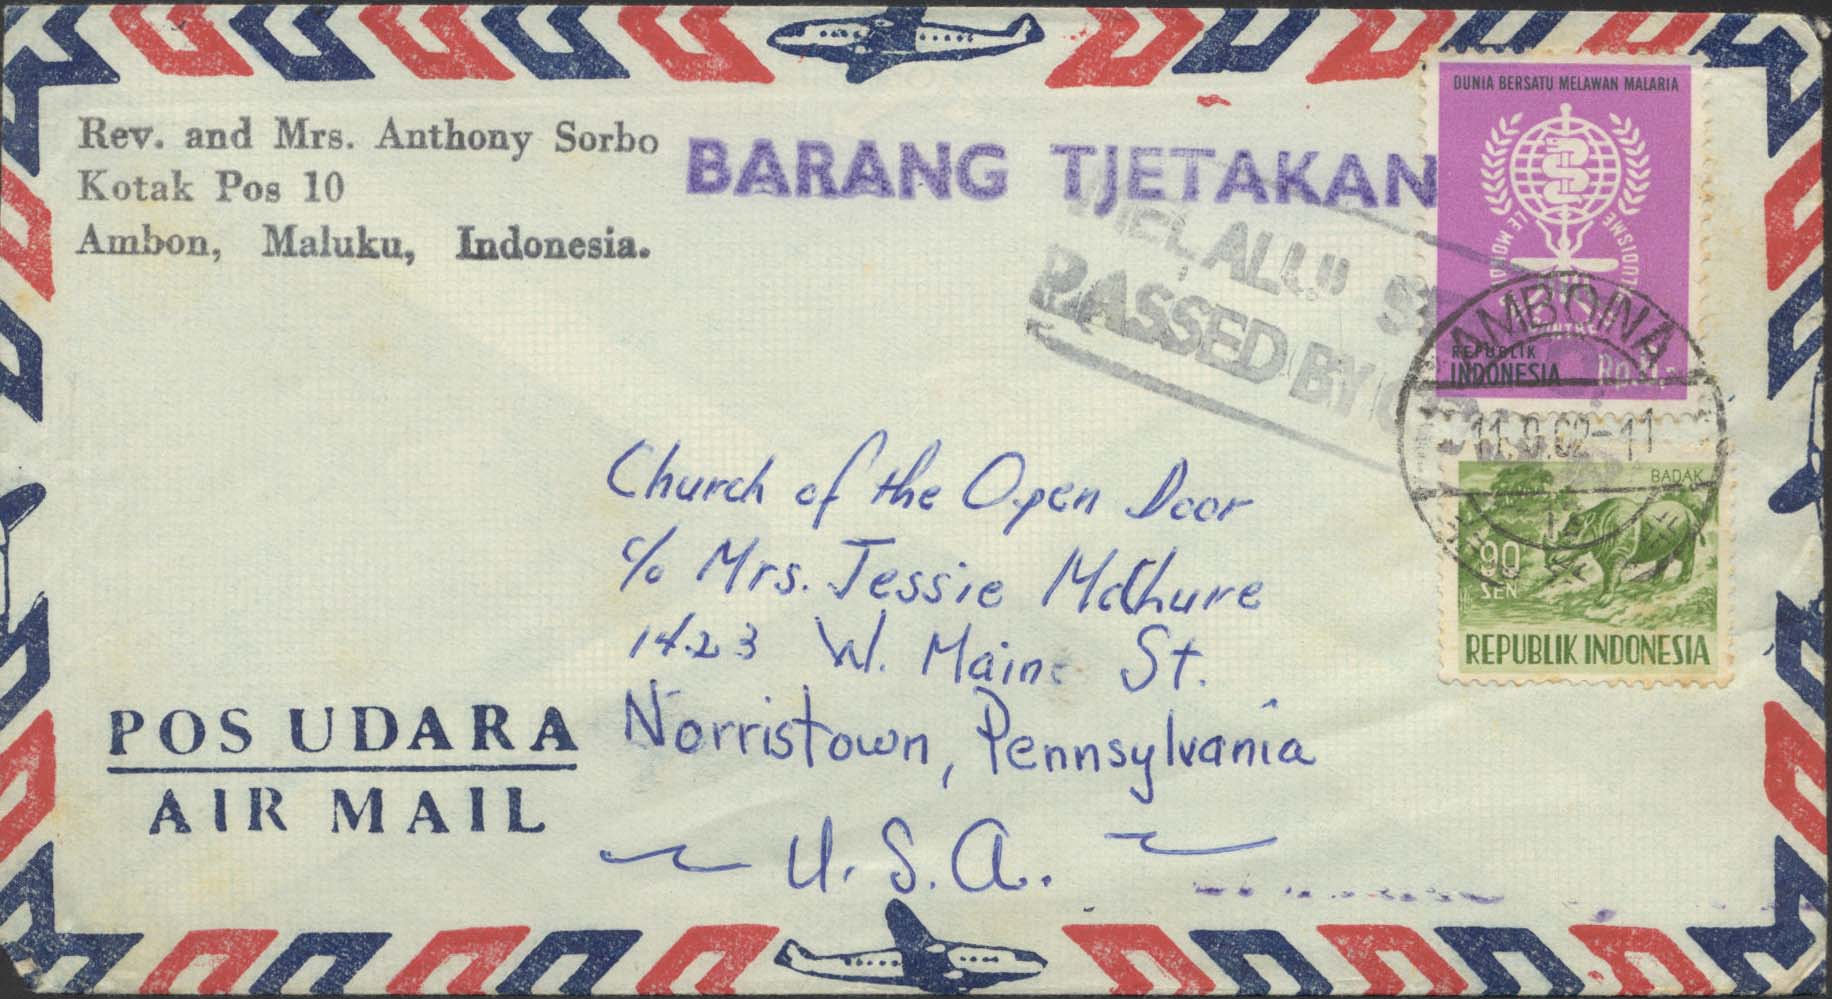 Rev. and Mrs. Anthony Sorbo
Kotak Pos 10
Ambon, Maluku, Indonesia.
BARANG TJETAKAN
MELALUI
PASSED BY
DUNIA BERSATU MELAWAN MALARIA
LE MONDE
REPUBLIK
INDONESIA
AMBOINA
11.9.62-11
BADAK
90
SEN
REPUBLIK INDONESIA
Church of the Open Door
c/o Mrs. Jessie McChure
1423 W. Maine St.
Norristown, Pennsylvania
U.S.A.
POS UDARA
AIR MAIL